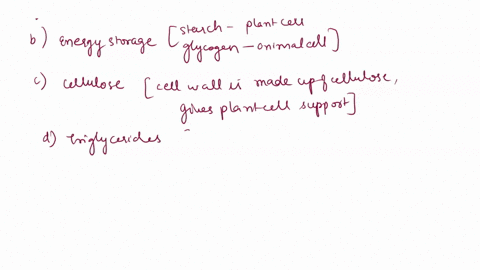 b) energy storage [starch - plant cell
glycogen - animal cell]
c) cellulose [cell wall is made up of cellulose,
gives plant cell support]
d) triglycerides